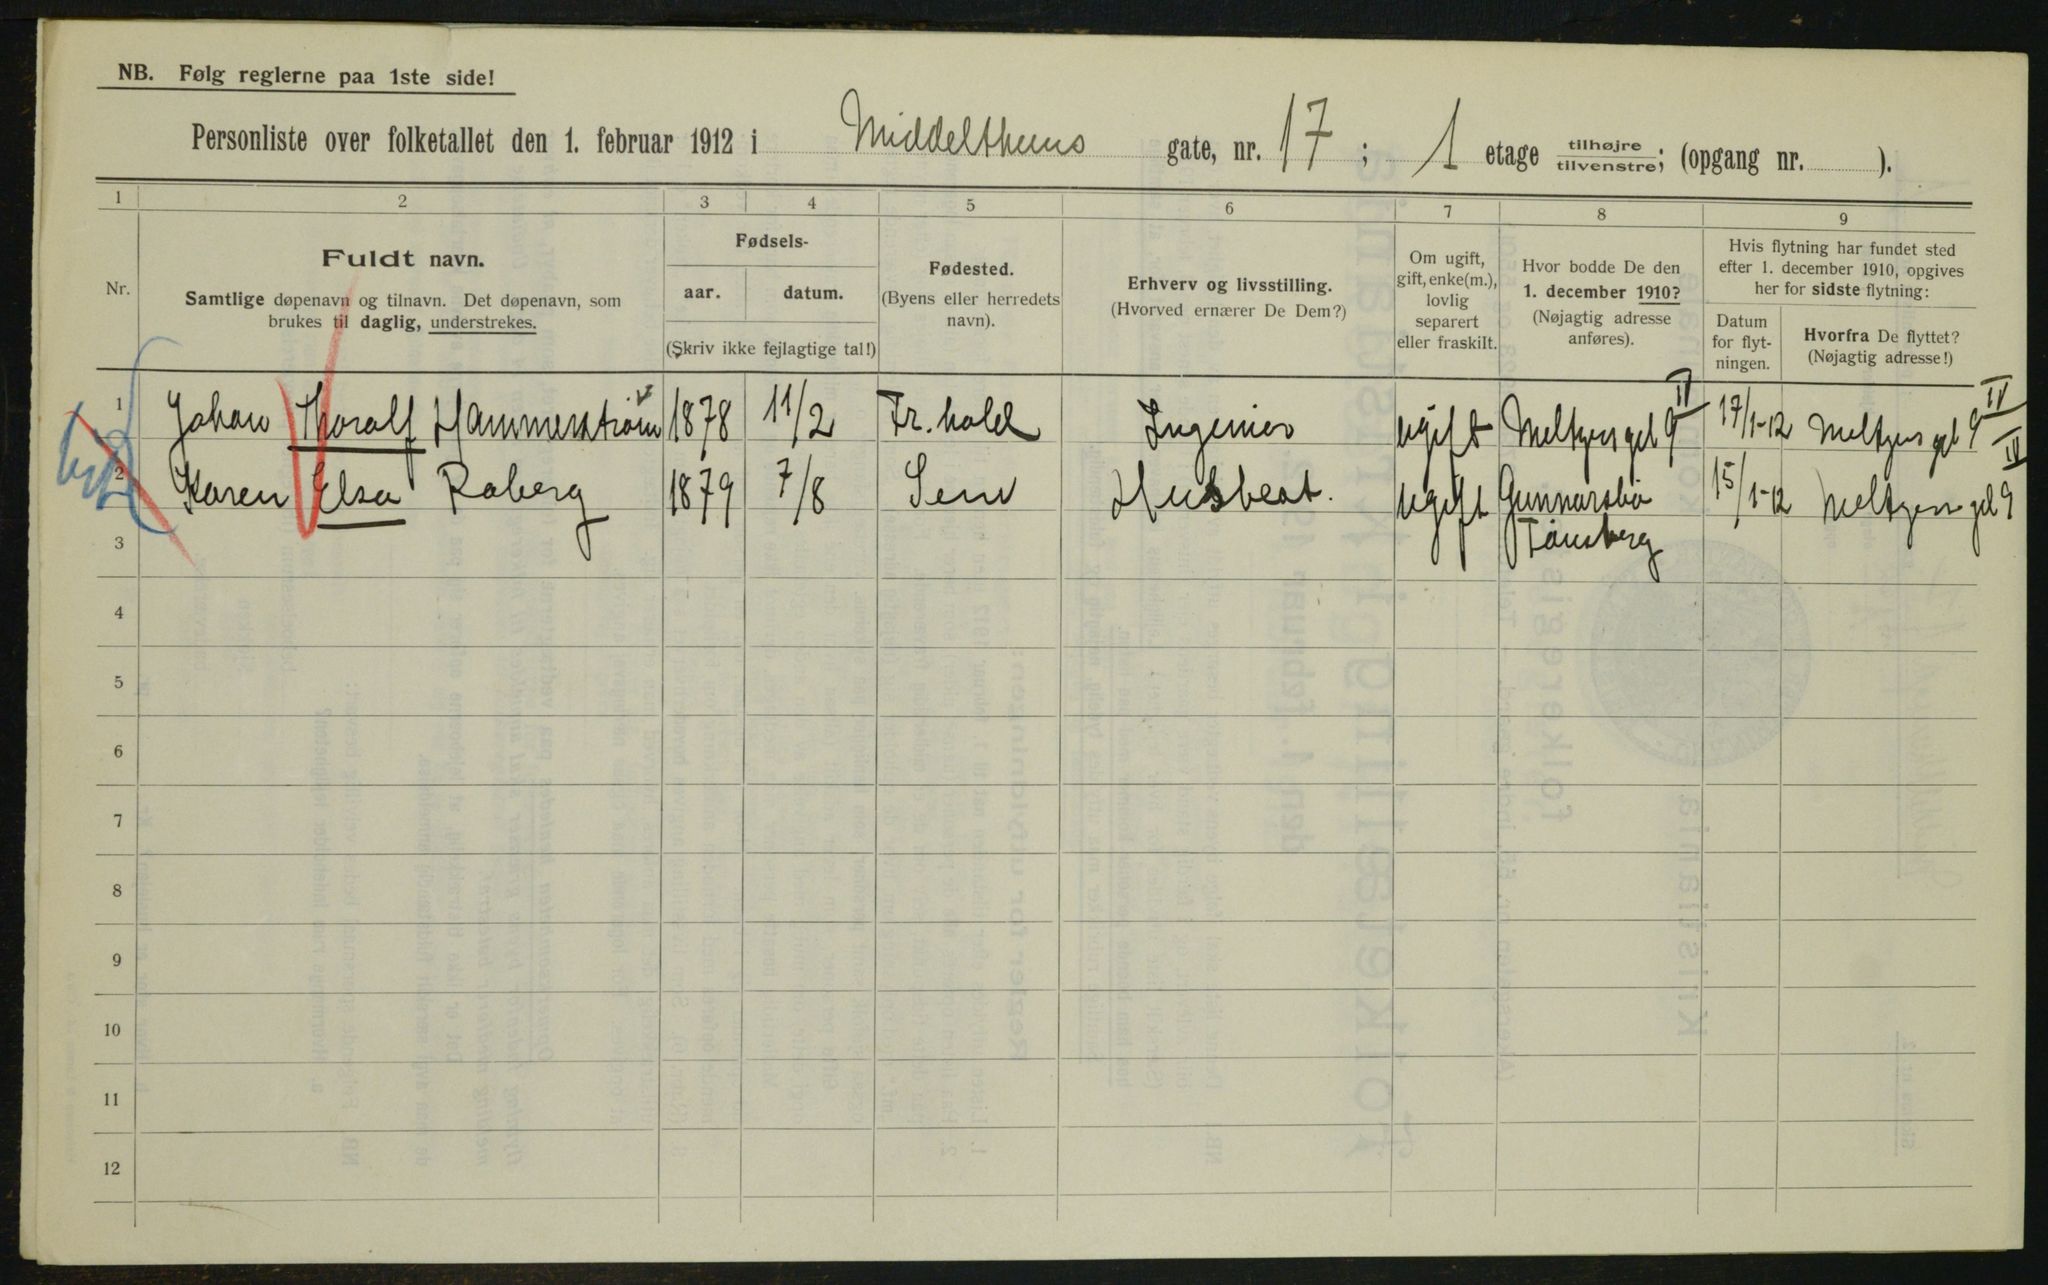 NB. Følg reglerne paa 1ste side!
Personliste over folketallet den 1. februar 1912 i Middelthuns gate, nr. 17; 1 etage tilhøjre / tilvenstre; (opgang nr. ).
1 2 3 4 5 6 7 8 9
Nr.
Fuldt navn.
Samtlige døpenavn og tilnavn. Det døpenavn, som
brukes til daglig, understrekes.
Fødsels-
aar. datum.
(Skriv ikke fejlagtige tal!)
Fødested.
(Byens eller herredets
navn).
Erhverv og livsstilling.
(Hvorved ernærer De Dem?)
Om ugift,
gift, enke(m.),
lovlig
separert
eller fraskilt.
Hvor bodde De den
1. december 1910?
(Nøjagtig adresse
anføres).
Hvis flytning har fundet sted
efter 1. december 1910, opgives
her for sidste flytning:
Datum
for flyt-
ningen.
Hvorfra De flyttet?
(Nøjagtig adresse!)
1 Johan Thoralf Hammerstrøm 1878 11/2 Fr.hald Ingeniør ugift Meltzersgt 9 IV 17/1-12 Meltzersgt 9 IV
2 Karen Elsa Roberg 1879 7/8 Sem Husbest. ugift Gunnarsbø 15/1-12 Meltzersgt 9 IV
3 Tønsberg
4
5
6
7
8
9
10
11
12